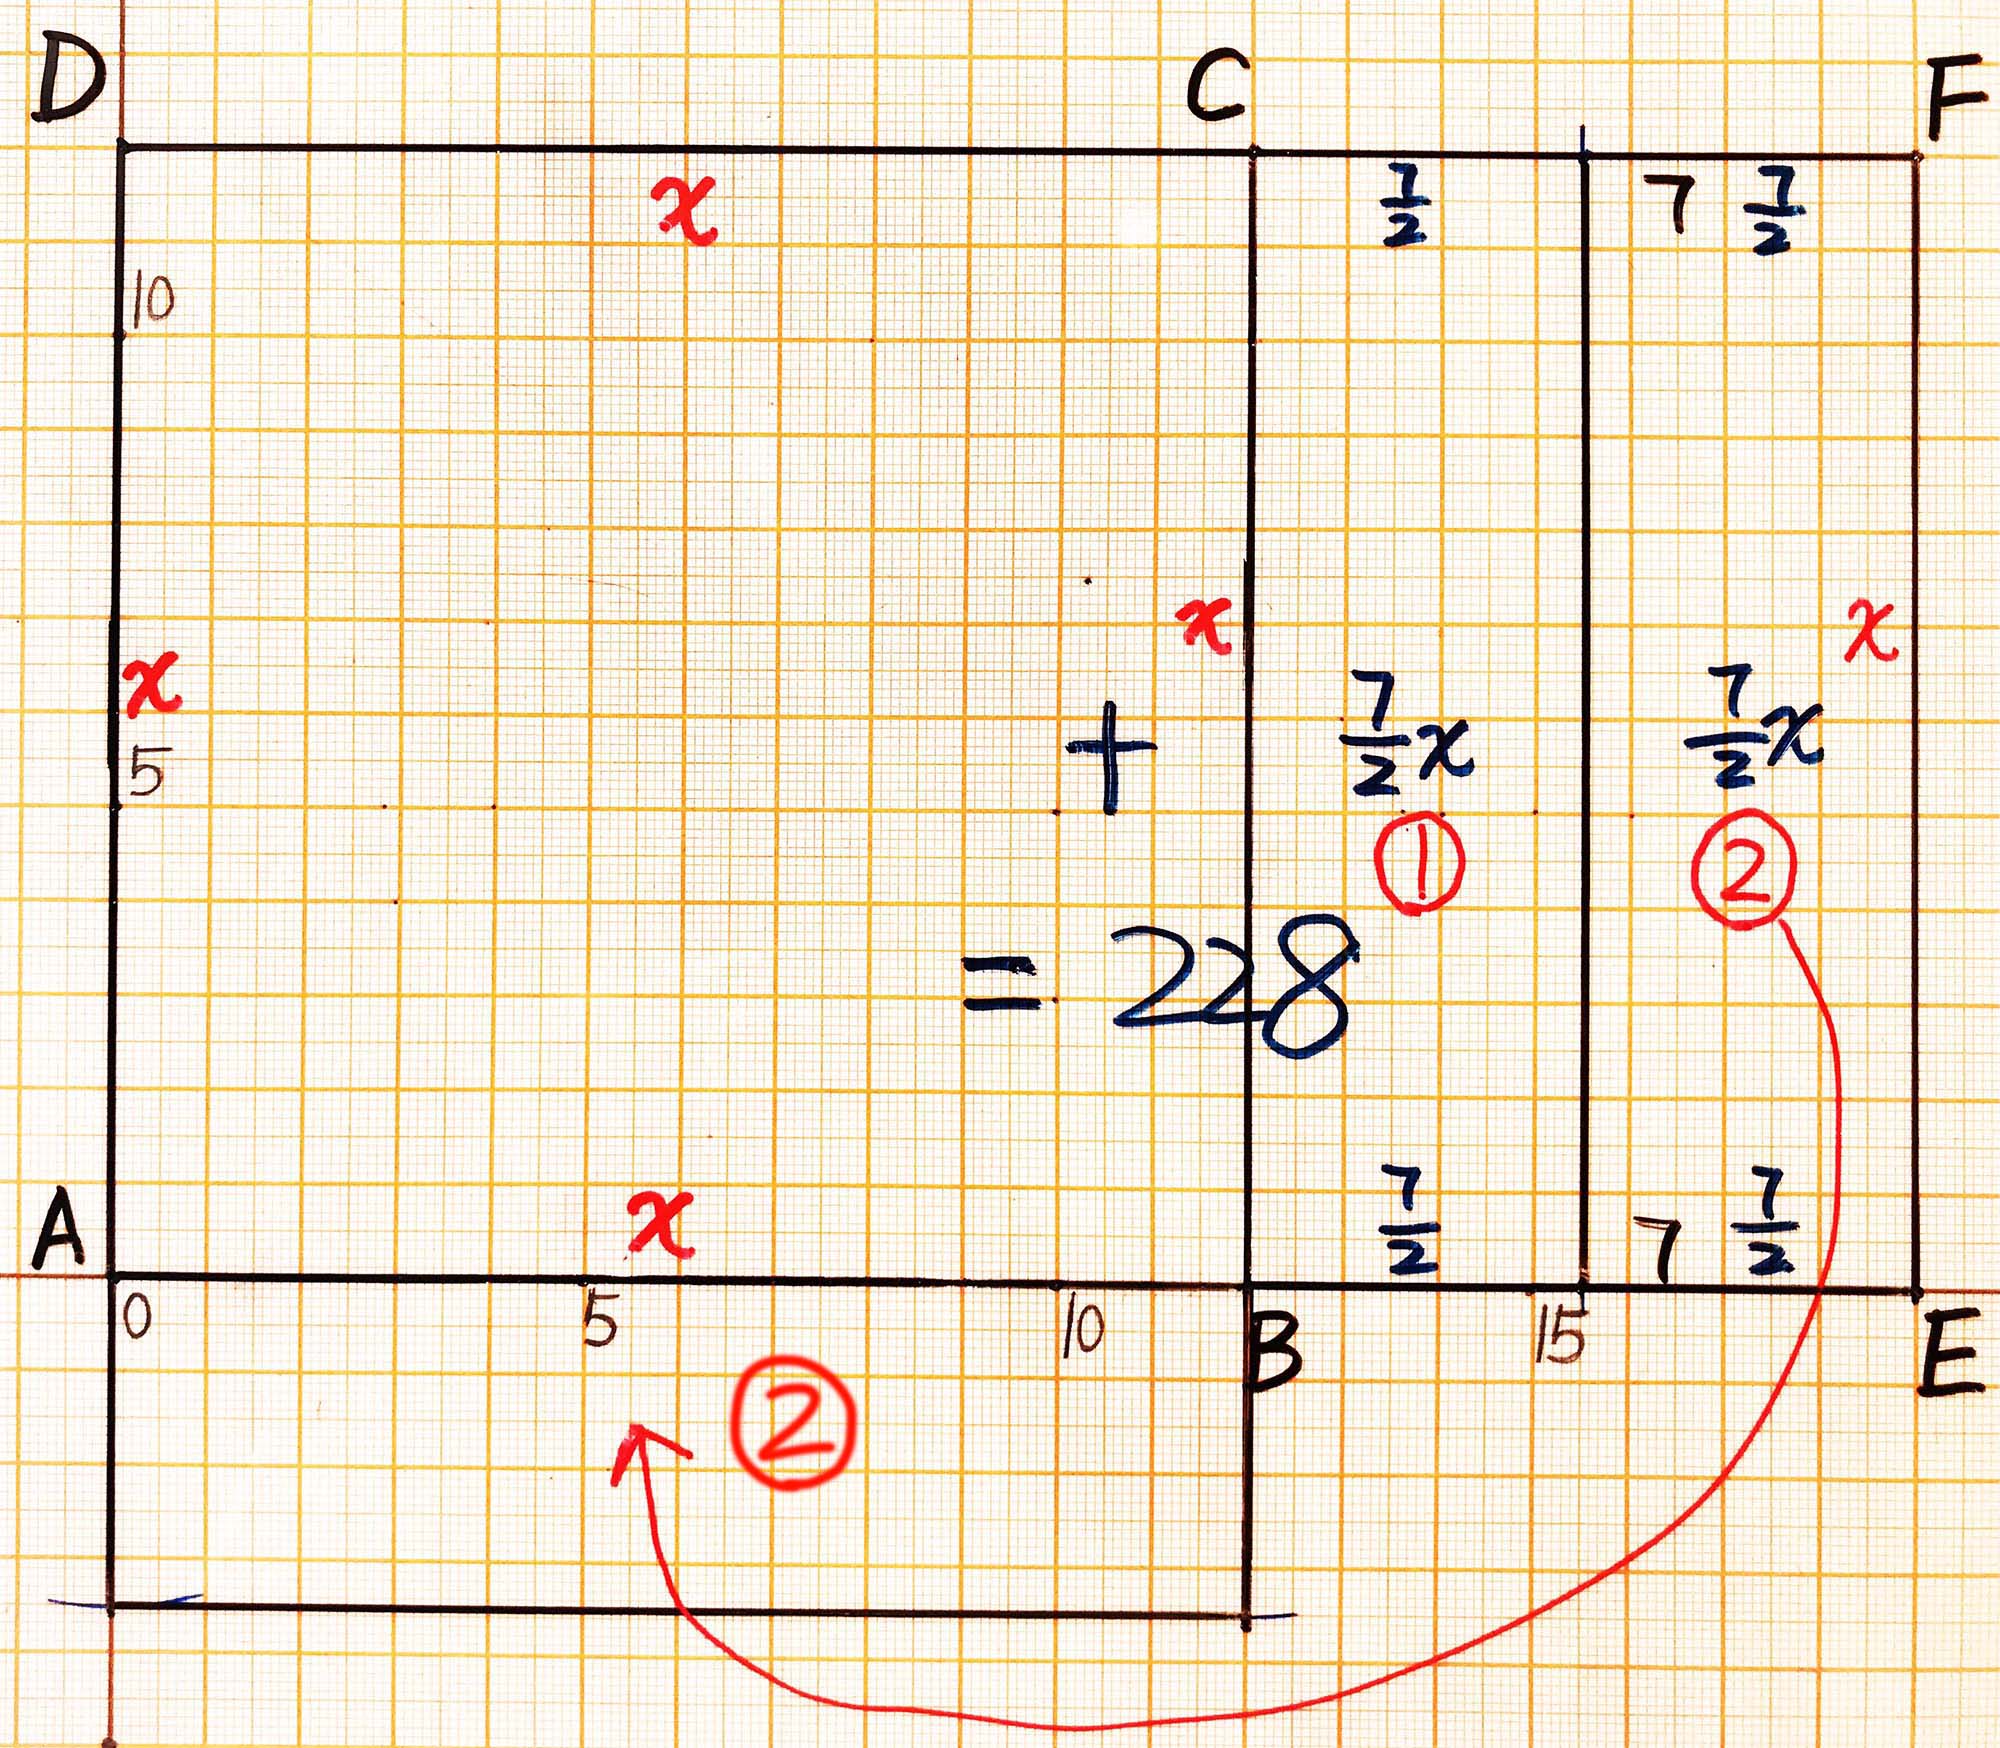 D C F
x 7/2 7 7/2
10
x x
x
5
+ 7/2 x 7/2 x
① ②
= 228
A x 7/2 7 7/2
0 5 10 B 15 E
②